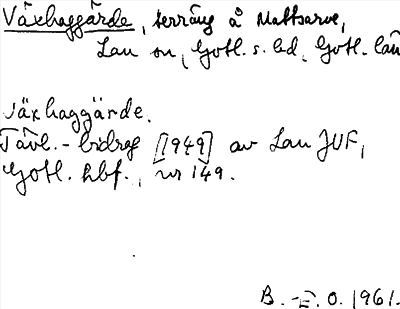 Växhaggärde, terräng å Mattsarve,
Lau sn, Gotl. s. hd, Gotl. län
växhaggärde.
Tävl.-bidrag [1949] av Lau JUF,
Gotl. hbf., nr 149.
B.-E. O. 1961.